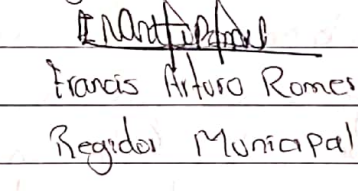 Francis Arturo Romer
Regidor Municipal